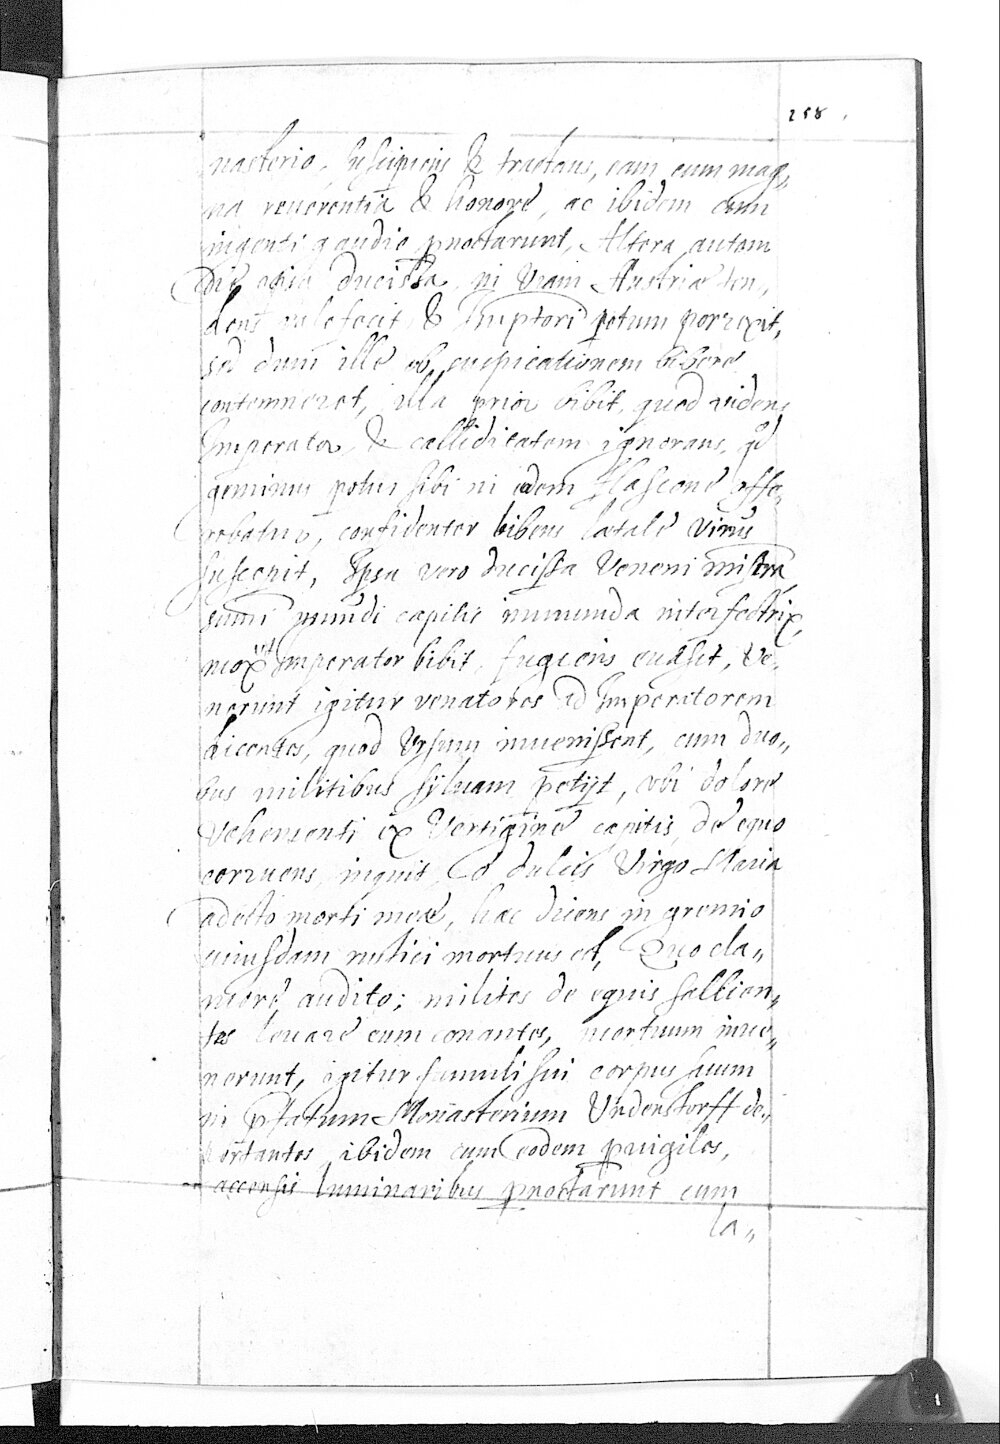 258.
nasterio, suscipiens & tractans, eam cum mag„
na reuerentia & honore, ac ibidem cum
ingenti gaudio pnoctarunt, Altera autem
die ipsa Ducissa, in Viam Austriae ten„
dens valefecit, & Imptori potum porrexit,
sed dum ille ob suspicationem bibere
contemneret, illa prior bibit, quod videns
Imperator, & calliditatem ignorans, qd
geminus potus sibi in eodem Flascone offe„
rebatur, confidenter bibens latale virus
suscepit, Ipsa vero Ducissa Veneni mistra,
summi mundi capitis immunda interfectrix,
mox ut Imperator bibit, fugiens euasit, Ve„
nerunt igitur venatores ad Imperatorem
dicentes, quod Vrsum inuenissent, cum duo„
bus militibus syluam petijt, vbi dolore
Vehementi ex Vertigine capitis de equo
corruens, inquit, O dulcis Virgo Maria
adesto morti meae, hac dicens in gremio
cuiusdam rustici mortuus est, Quo cla„
more audito; milites de equis sallien„
tes leuare eum conantes, mortuum inue„
nerunt, igitur famuli sui corpus suum
in pfatum Monasterium Vrdenstorff de„
portantes ibidem cum eodem pvigiles,
accensis luminaribus pnoctarunt cum
la„